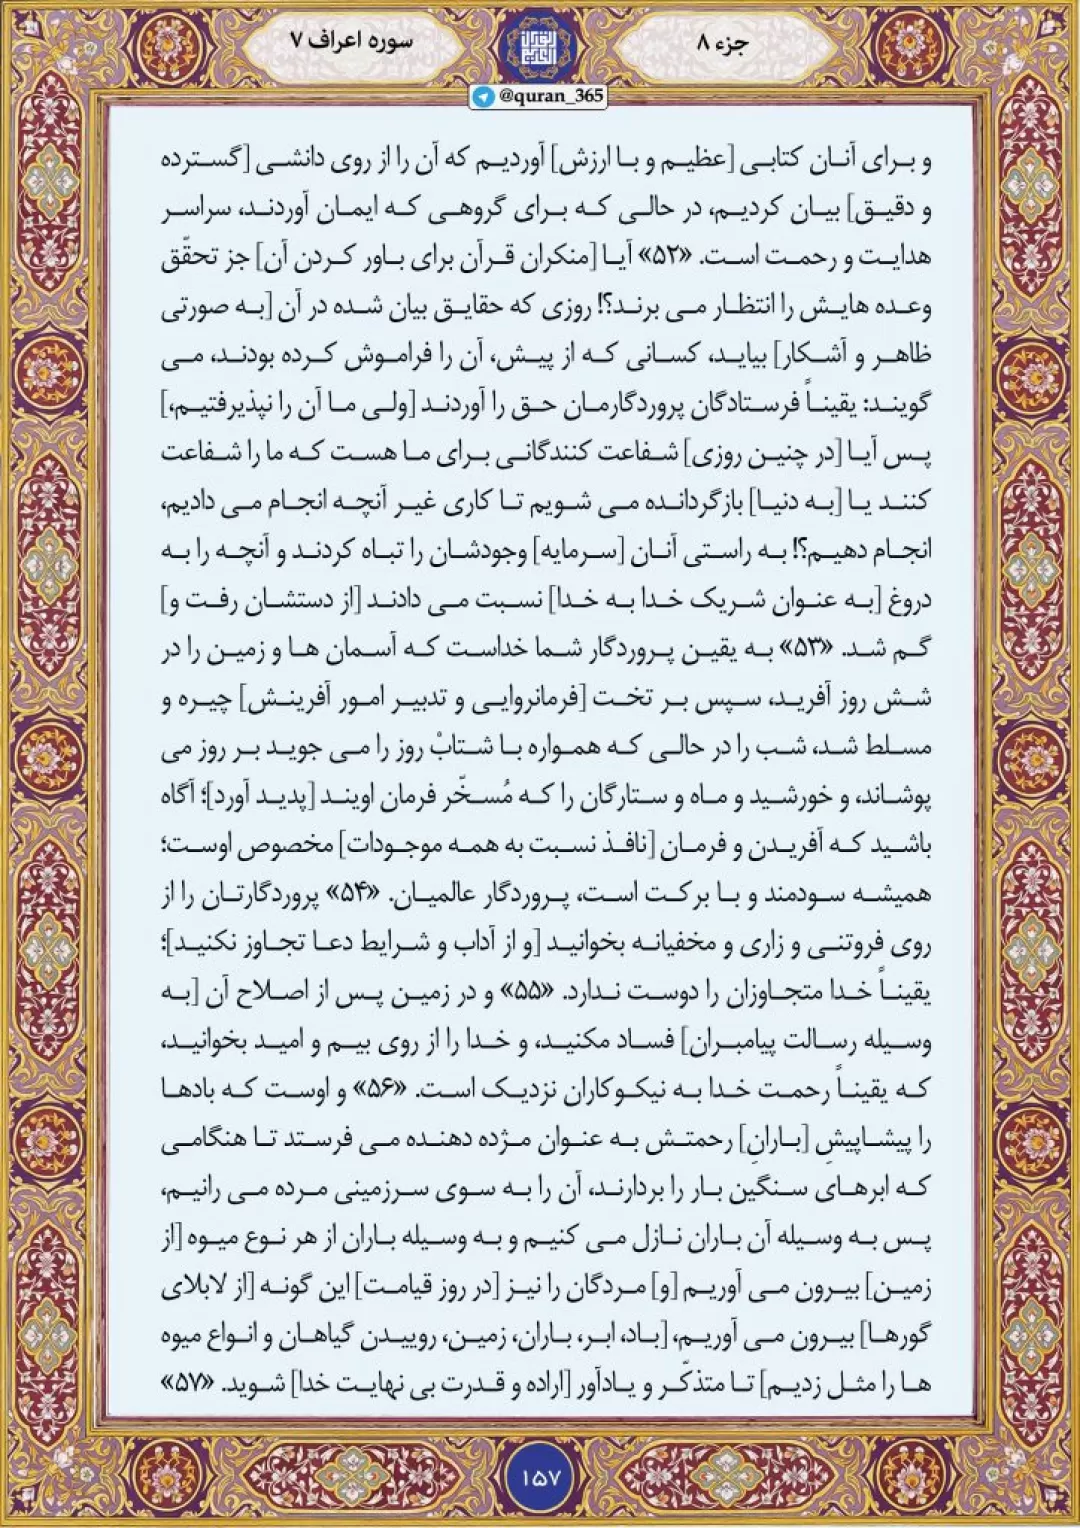 جزء ۸
سوره اعراف ۷
@quran_365
و برای آنان کتابی [عظیم و با ارزش] آوردیم که آن را از روی دانشی [گسترده
و دقیق] بیان کردیم، در حالی که برای گروهی که ایمان آوردند، سراسر
هدایت و رحمت است. «۵۲» آیا [منکران قرآن برای باور کردن آن] جز تحقّق
وعده هایش را انتظار می برند؟! روزی که حقایق بیان شده در آن [به صورتی
ظاهر و آشکار] بیاید، کسانی که از پیش، آن را فراموش کرده بودند، می
گویند: یقیناً فرستادگان پروردگارمان حق را آوردند [ولی ما آن را نپذیرفتیم،]
پس آیا [در چنین روزی] شفاعت کنندگانی برای ما هست که ما را شفاعت
کنند یا [به دنیا] بازگردانده می شویم تا کاری غیر آنچه انجام می دادیم،
انجام دهیم؟! به راستی آنان [سرمایه] وجودشان را تباه کردند و آنچه را به
دروغ [به عنوان شریک خدا به خدا] نسبت می دادند [از دستشان رفت و]
گم شد. «۵۳» به یقین پروردگار شما خداست که آسمان ها و زمین را در
شش روز آفرید، سپس بر تخت [فرمانروایی و تدبیر امور آفرینش] چیره و
مسلط شد، شب را در حالی که همواره با شتابْ روز را می جوید بر روز می
پوشاند، و خورشید و ماه و ستارگان را که مُسخّر فرمان اویند [پدید آورد]؛ آگاه
باشید که آفریدن و فرمان [نافذ نسبت به همه موجودات] مخصوص اوست؛
همیشه سودمند و با برکت است، پروردگار عالمیان. «۵۴» پروردگارتان را از
روی فروتنی و زاری و مخفیانه بخوانید [و از آداب و شرایط دعا تجاوز نکنید]؛
یقیناً خدا متجاوزان را دوست ندارد. «۵۵» و در زمین پس از اصلاح آن [به
وسیله رسالت پیامبران] فساد مکنید، و خدا را از روی بیم و امید بخوانید،
که یقیناً رحمت خدا به نیکوکاران نزدیک است. «۵۶» و اوست که بادها
را پیشاپیشِ [بارانِ] رحمتش به عنوان مژده دهنده می فرستد تا هنگامی
که ابرهای سنگین بار را بردارند، آن را به سوی سرزمینی مرده می رانیم،
پس به وسیله آن باران نازل می کنیم و به وسیله باران از هر نوع میوه [از
زمین] بیرون می آوریم [و] مردگان را نیز [در روز قیامت] این گونه [از لابلای
گورها] بیرون می آوریم، [باد، ابر، باران، زمین، روییدن گیاهان و انواع میوه
ها را مثل زدیم] تا متذکّر و یادآور [اراده و قدرت بی نهایت خدا] شوید. «۵۷»
۱۵۷